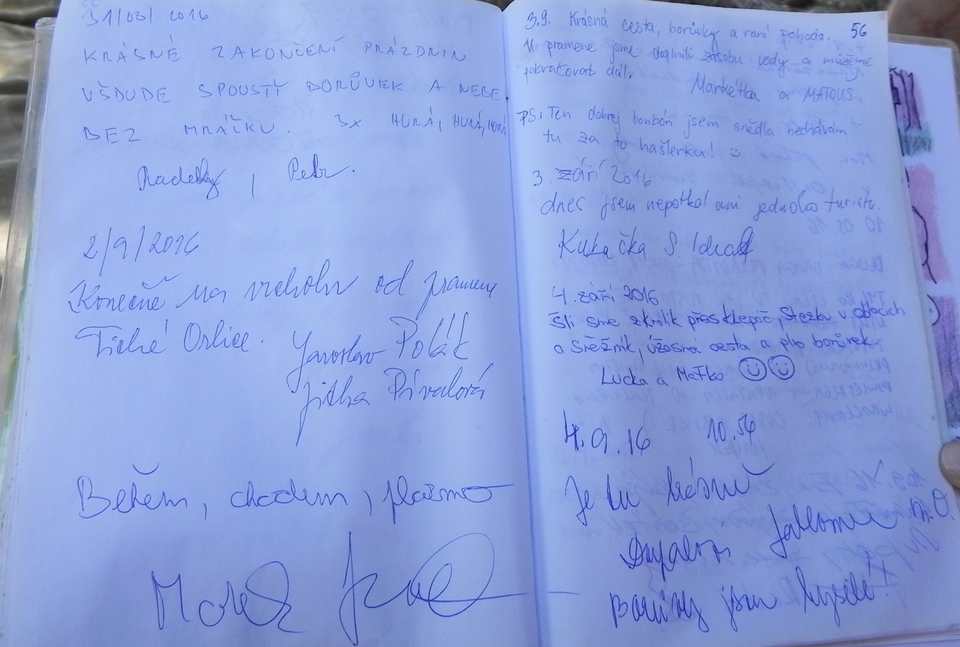 31/08/2016
KRÁSNÉ ZAKONČENÍ PRÁZDNIN
VŠDUDE SPOUSTY BORŮVEK A NEBE
BEZ MRÁČKU. 3x HURÁ, HURÁ, HURÁ
Petr.
2/9/2016
Konečně na vrcholu od pramene
Tiché Orlice. Jaroslav Polák
Jitka
Během, chodem, plazmo
Marek
56
3.9. Krásná cesta, borůvky a raní pohoda.
U pramene jsme doplnili zásobu vody a můžeme
pokračovat dál.
Markétka a MATOUŠ
PS: Ten dobrej bonbón jsem snědla nechávám
tu za to hašlerku!
3. září 2016
dnes jsem nepotkal ani jednoho turistu.
Kukačka S.
4. září 2016
Šli sme zkrálik přes klepáč, Stezku v oblacích
a Sněžník, úžasná cesta a plno borůvek
Lucka a Maťko
4.9.16 10.54
Je tu krásně
Jablonné n.O.
Borůvky jsou kyselé!